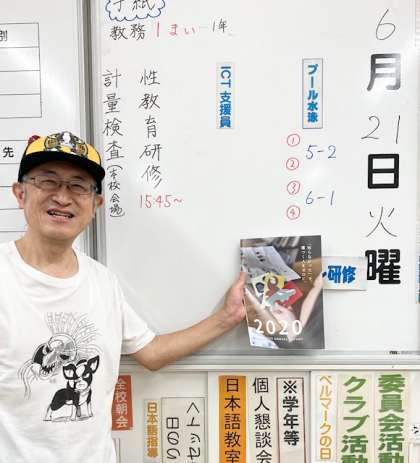 6月21日火曜
手紙
教務 1まい…1年
性教育研修
15:45~
計量検査(本校会場)
ICT支援員
プール水泳
① 5-2
②
③ 6-1
④
研修
2020
別
先
全校朝会
日本語指導
日本語教室
個人懇談会
※学年等
ベルマークの日
クラブ活動
委員会活動